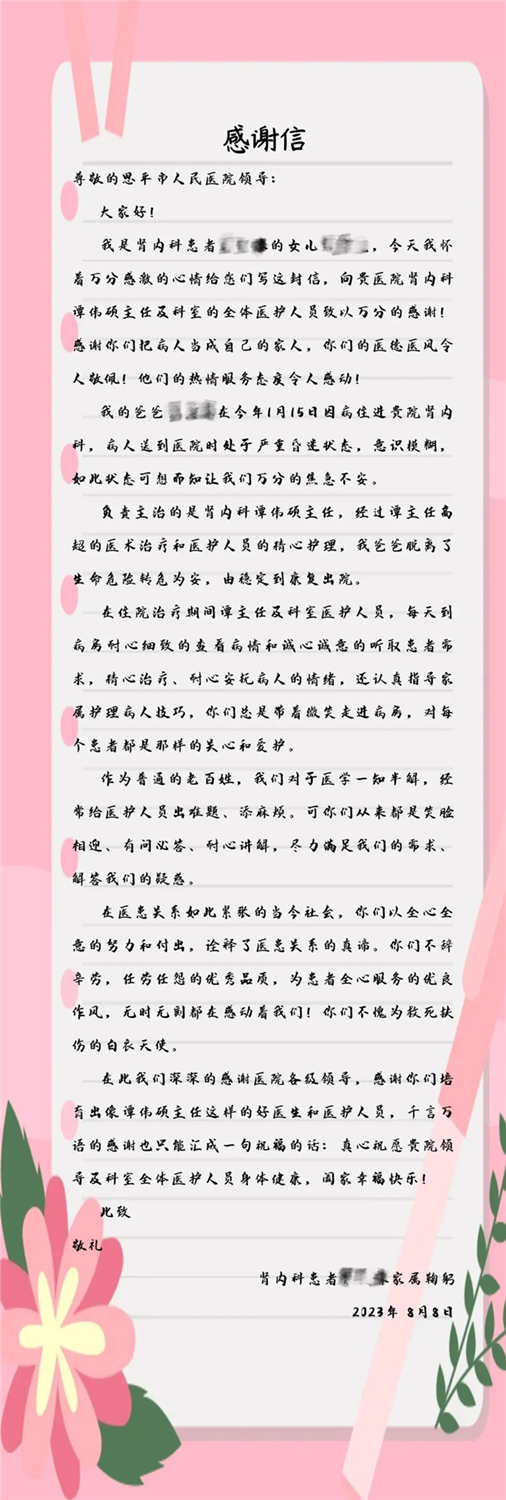 感谢信
尊敬的恩平市人民医院领导：
大家好！
我是肾内科患者的女儿，今天我怀
着万分感激的心情给您们写这封信，向贵医院肾内科
谭伟硕主任及科室的全体医护人员致以万分的感谢！
感谢你们把病人当成自己的家人，你们的医德医风令
人敬佩！他们的热情服务态度令人感动！
我的爸爸在今年1月15日因病住进贵院肾内
科，病人送到医院时处于严重昏迷状态，意识模糊，
如此状态可想而知让我们万分的焦急不安。
负责主治的是肾内科谭伟硕主任，经过谭主任高
超的医术治疗和医护人员的精心护理，我爸爸脱离了
生命危险转危为安，由稳定到康复出院。
在住院治疗期间谭主任及科室医护人员，每天到
病房耐心细致的查看病情和诚心诚意的听取患者需
求，精心治疗、耐心安抚病人的情绪，还认真指导家
属护理病人技巧，你们总是带着微笑走进病房，对每
个患者都是那样的关心和爱护。
作为普通的老百姓，我们对于医学一知半解，经
常给医护人员出难题、添麻烦。可你们从来都是笑脸
相迎、有问必答、耐心讲解，尽力满足我们的需求、
解答我们的疑惑。
在医患关系如此紧张的当今社会，你们以全心全
意的努力和付出，诠释了医患关系的真谛。你们不辞
辛劳，任劳任怨的优秀品质，为患者全心服务的优良
作风，无时无刻都在感动着我们！你们不愧为救死扶
伤的白衣天使。
在此我们深深的感谢医院各级领导，感谢你们培
育出像谭伟硕主任这样的好医生和医护人员，千言万
语的感谢也只能汇成一句祝福的话：真心祝愿贵院领
导及科室全体医护人员身体健康，阖家幸福快乐！
此致
敬礼
肾内科患者家属鞠躬
2023年 8月8日